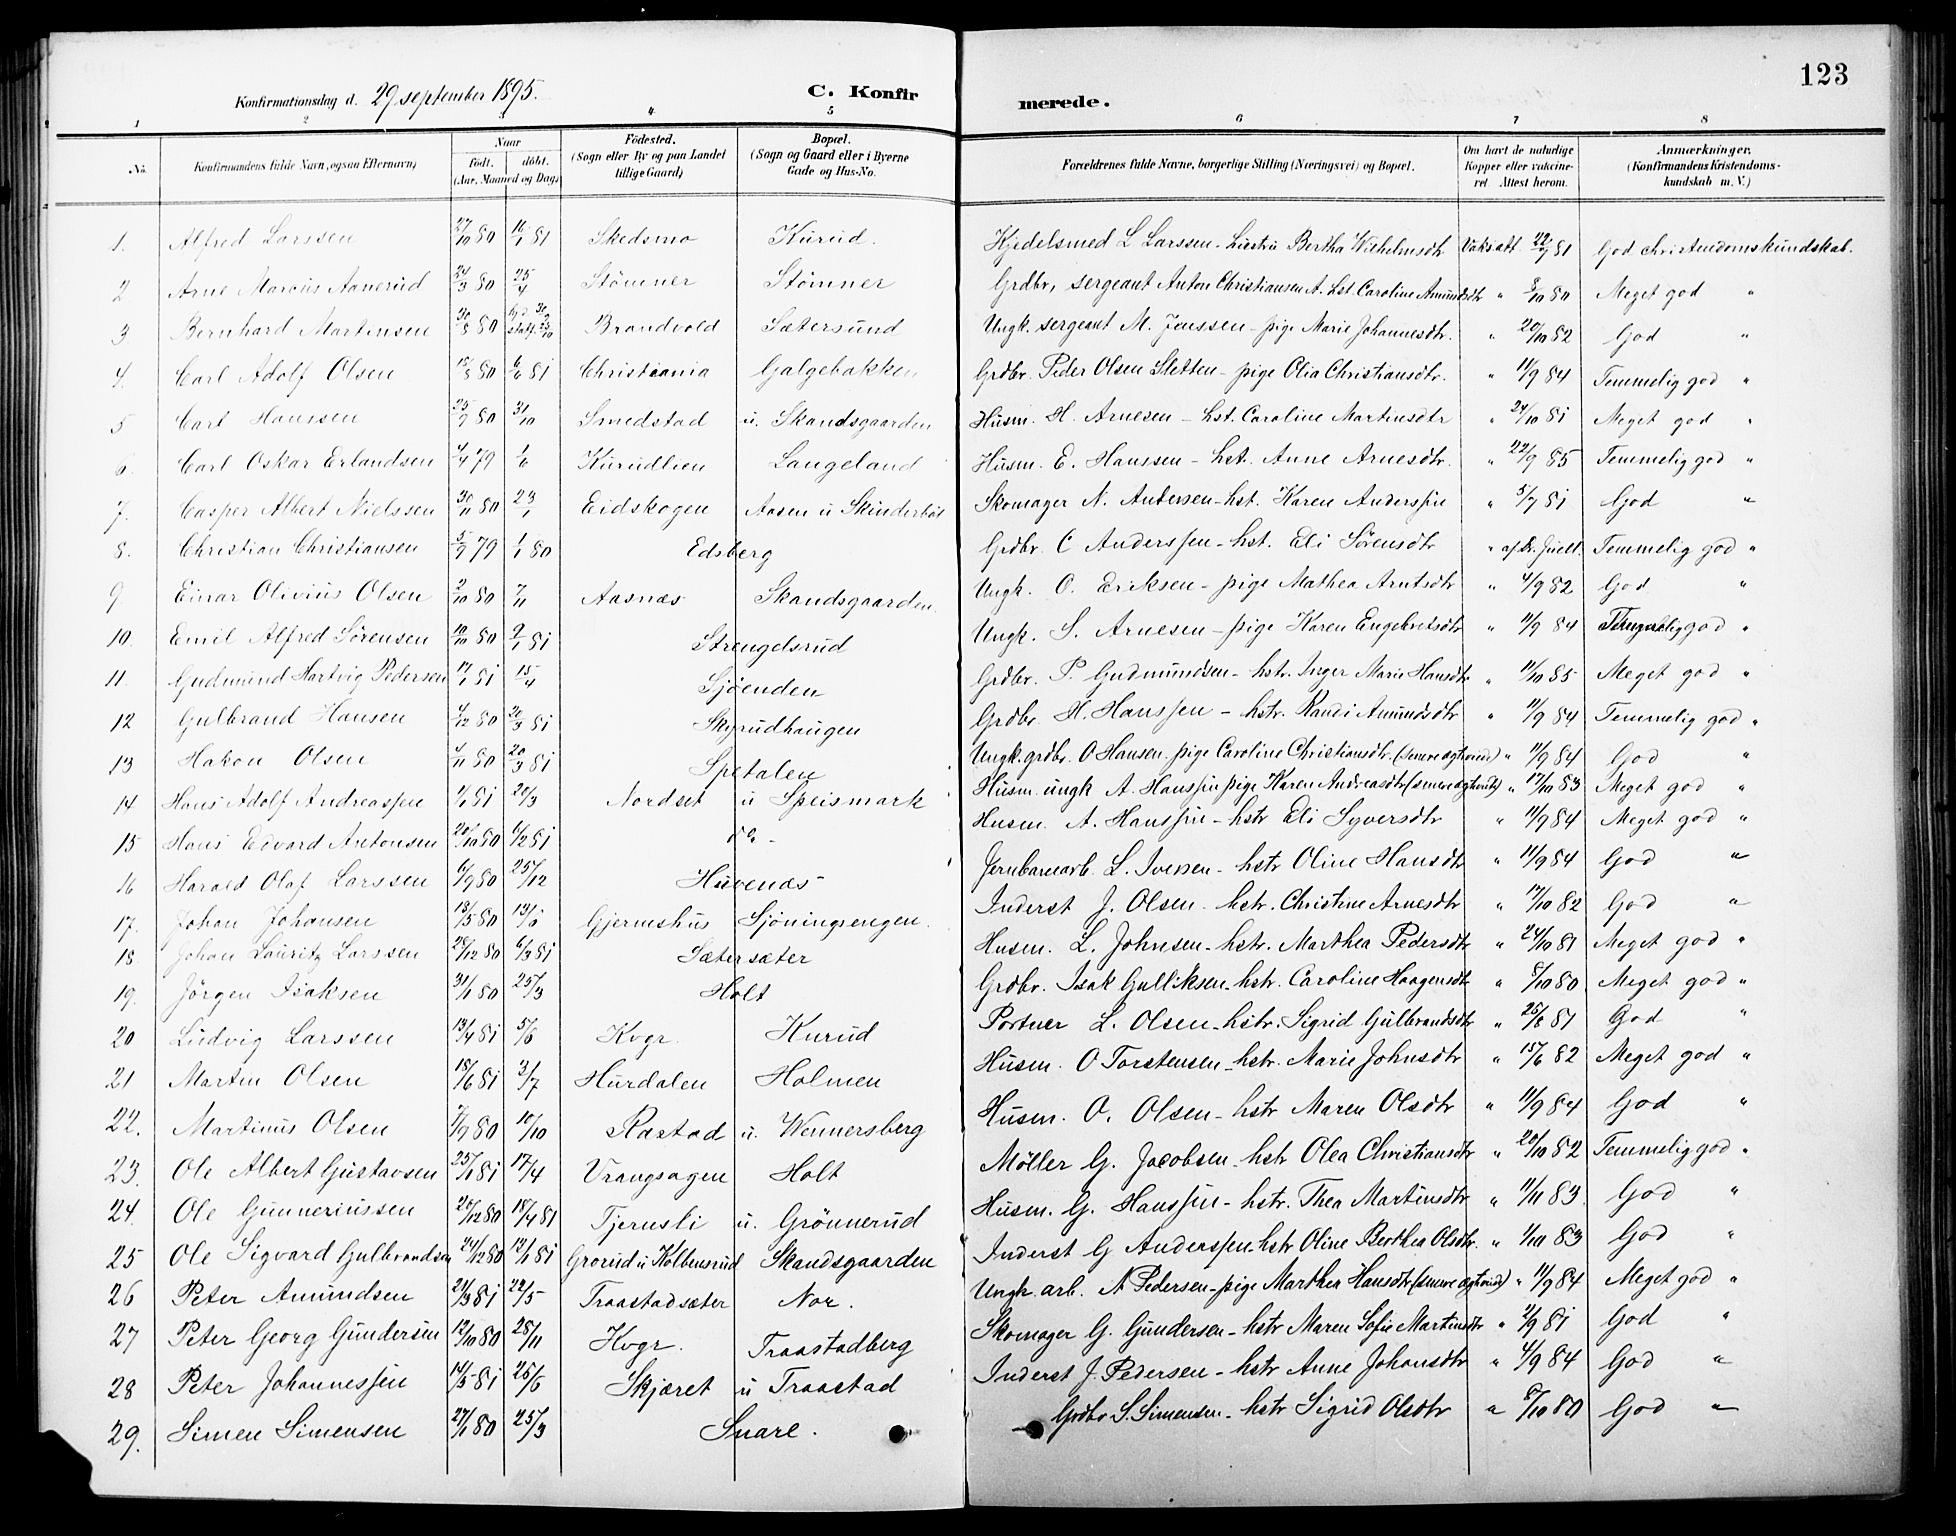 123
Konfirmationsdag d. 29 september 1895. C. Konfirmerede.
1 2 3 4 5 6 7 8
No. Konfirmandens fulde Navn, ogsaa Efternavn) Naar født. døbt. (Aar, Maaned og Dag) Fødested. (Sogn eller By og paa Landet tillige Gaard) Bopæl. (Sogn og Gaard eller i Byerne Gade og Hus-No. Forældrenes fulde Navne, borgerlige Stilling (Næringsvei) og Bopæl. Om havt de naturlige Kopper eller vakcineret. Attest herom. Anmærkninger. (Konfirmandens Kristendomskundskab m. V.)
1. Alfred Larssen 27/10 80 16/1 81 Skedsmo Kurud. Kjedelsmed L Larssen - hustru Bertha Wilhelmsdtr Vaks. att. 22/9 81 God christendomskundskab.
2 Arne Marius Aanerud 24/3 80 25/4 Stømner Stømner Grdbr, sergeant Anton Christiansen A. hst. Caroline Amundsdtr " 8/10 80 Meget god "
3 Bernhard Martinsen 30/8 80 Brandvold Sætersund Ungk. sergeant M. Jenssen - pige Marie Johannesdtr. " 20/10 82 God "
4. Carl Adolf Olsen 15/3 80 6/6 81 Christiania Galgebakken Grdbr. Peder Olsen Sletten - pige Olia Christiansdtr. " 11/9 84 Temmelig god "
5 Carl Hanssen 25/9 80 31/10 Smedstad u. Skandsgaarden Husm. H. Arnesen - hst. Caroline Martinsdtr " 24/10 81 Meget god "
6. Carl Oskar Erlandsen 4/4 79 1/6 Kurudlien Langeland Husm. E. Hanssen - hst. Anne Arnesdtr. " 22/9 85 Temmelig god "
7. Casper Albert Nielssen 30/11 80 23/1 Eidskogen Aasen u Skinderbøl Skomager N. Andersen - hst. Karen Anderssen " 5/7 81 God "
8. Christian Christiansen 5/9 79 1/1 80 Edsberg Grdbr. C Anderssen - hst. Eli Sørensdtr " af Dr. Juell. Temmelig god "
9 Einar Olivius Olsen 2/10 80 7/11 Aasnæs Skandsgaarden. Ungk. O. Eriksen - pige Mathea Arntsdtr " 4/9 82 God "
10. Emil Alfred Sørensen 10/10 80 9/1 81 Strengelsrud Ungk. S. Arnesen - pige Karen Engebretsdtr " 11/9 84 Temmelig god "
11. Gudmund Hartvig Pedersen 17/1 81 15/4 Sjøenden Grdbr. P. Gudmundsen - hstr. Inger Marie Hansdtr " 11/10 85 Meget god "
12 Gulbrand Hansen 4/12 80 20/3 81 Skyrudhaugen Grdbr. H. Hanssen - hstr. Randi Amundsdtr " 11/9 84 Temmelig god "
13 Hakon Olsen 4/11 80 20/3 81 Spetalen Ungk. grdbr. O Hansen. pige Caroline Christiansdtr. (senere ægtevied) " 11/9 84 God "
14 Hans Adolf Andreassen 1/1 81 20/3 Nordset u Speismark Husm. ungk A. Hanssen pige Karen Andreasdtr (senere ægtevite) " 17/10 83 Meget god "
15 Hans Edvard Antonsen 20/10 80 6/2 81 do - Husm. A. Hanssen - hstr Eli Syversdtr " 11/9 84 Meget god "
16 Harald Olaf Larssen 6/9 80 25/12 Huvenæs Jernbanearb. L. Iversen - hstr Oline Hansdtr " 11/9 84 God "
17. Johan Johansen 18/5 80 13/6 Gjermshus Sjøningsengen. Inderst J. Olsen - hstr. Christine Arnesdtr " 17/10 82 God "
18. Johan Lauritz Larssen 28/12 80 6/3 81 Sætersæter Husm. L. Johnsen - hstr. Marthea Pedersdtr " 24/10 81 Meget god "
19. Jørgen Isaksen 31/1 80 25/3 Holt Grdbr. Isak Gulliksen - hstr. Caroline Haagensdtr " 8/10 80 Meget god "
20 Ludvig Larssen 13/4 81 5/6 Kvgr. Kurud Portner L. Olsen - hstr. Sigrid Gulbrandsdtr " 25/8 81 God "
21 Martin Olsen 18/6 81 3/7 Hurdalen Holmen Husm. O Torstensen - hstr. Marie Johnsdtr " 15/6 82 Meget god "
22. Martinus Olsen 7/9 80 10/10 Rastad u. Wennersberg Husm. O. Olsen - hstr Maren Olsdtr " 11/9 84 God "
23. Ole Albert Gustavsen 25/1 81 17/4 Vrangsagen Holt Møller G. Jacobsen - hstr Olea Christiansdtr " 20/10 82 Temmelig god "
24. Ole Gunneriussen 20/12 80 18/4 81 Tjernsli u. Grønnerud Husm. G. Hanssen - hstr. Thea Martinsdtr " 11/11 83. God "
25 Ole Sigvard Gulbrandsen 24/12 80 12/1 81 Grorud u Kolbensrud Skandsgaarden Inderst G Anderssen - hstr Oline Berthea Olsdtr. " 1/10 83 God "
26 Peter Amundsen 21/3 81 22/5 Traastadsæter Nor. Ungk. arb. A Pedersen - pige Marthea Hansdtr (senere ægtevied) " 11/9 84 Meget god "
27 Peter Georg Gundersen 12/10 80 28/11 Kvgr. Traastadberg Skomager G. Gundersen - hstr Maren Sofie Martinsdtr " 2/9 81 God "
28 Peter Johannessen 14/5 81 26/6 Skjæret u Traastad Inderst J. Pedersen - hstr Anne Johansdtr " 4/9 84 God "
29. Simen Simensen 27/1 80 25/3 Snare. Grdbr S. Simensen - hstr Sigrid Olsdtr " 8/10 80 God "